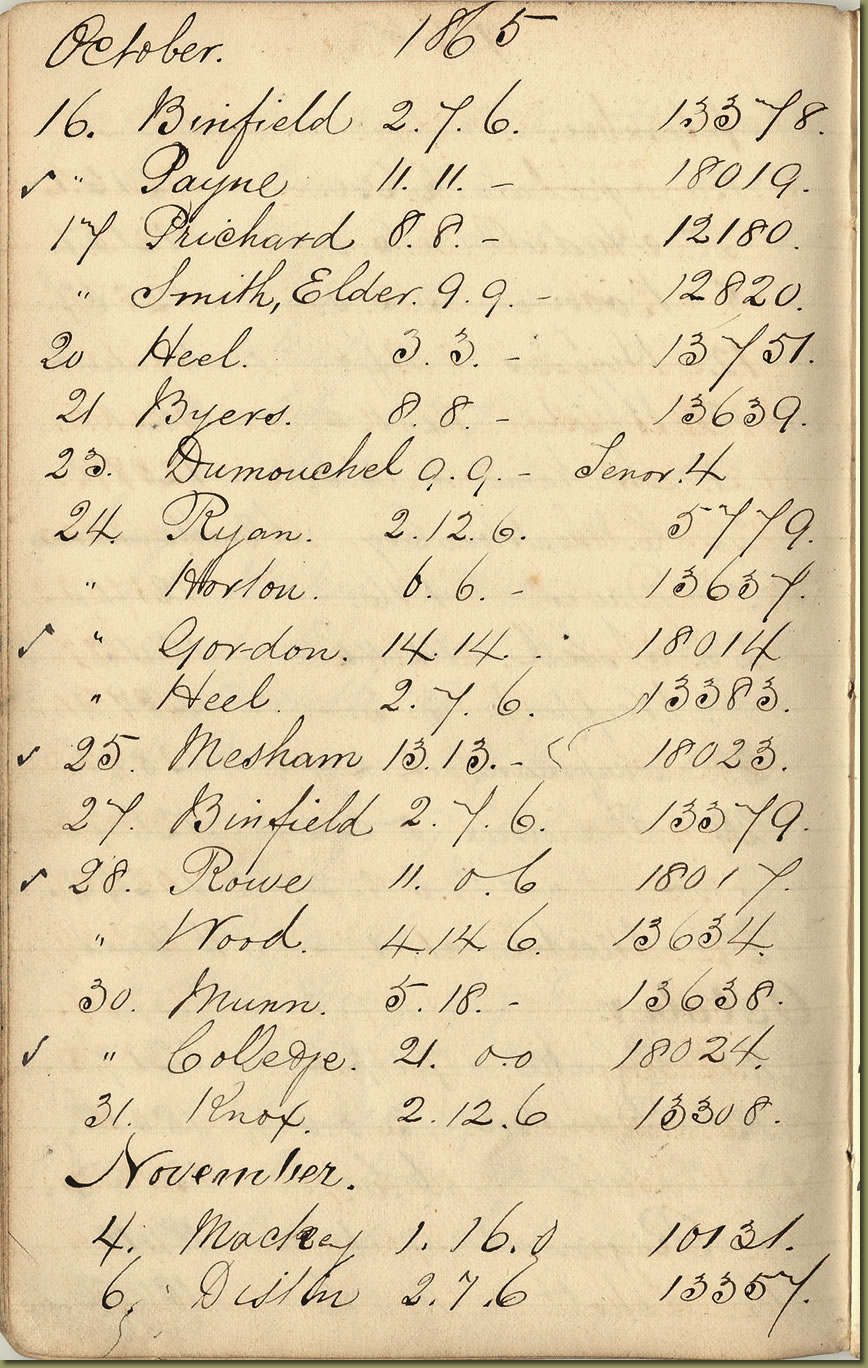 October. 1865
16. Binfield 2.7.6. 13378.
✓ " Payne 11.11. - 18019.
17 Prichard 8.8. - 12180.
" Smith, Elder. 9.9. - 12820.
20 Heel. 3.3. - 13751.
21 Byers. 8.8. - 13639.
23. Dumouchel 9.9. - Tenor. 4
24. Ryan. 2.12.6. 5779.
" Horton. 6.6. - 13637.
✓ " Gordon. 14.14. 18014
" Heel. 2.7.6. 13383.
✓ 25. Mesham 13.13. - 18023.
27. Binfield 2.7.6. 13379.
✓ 28. Rowe 11. 0.6 18017.
" Wood. 4.14.6. 13634.
30. Munn. 5.18. - 13638.
✓ " Colledge. 21. 0.0 18024.
31. Knox. 2.12.6 13308.
November.
4. Mackey 1.16.0 10131.
6. Distin 2.7.6 13357.